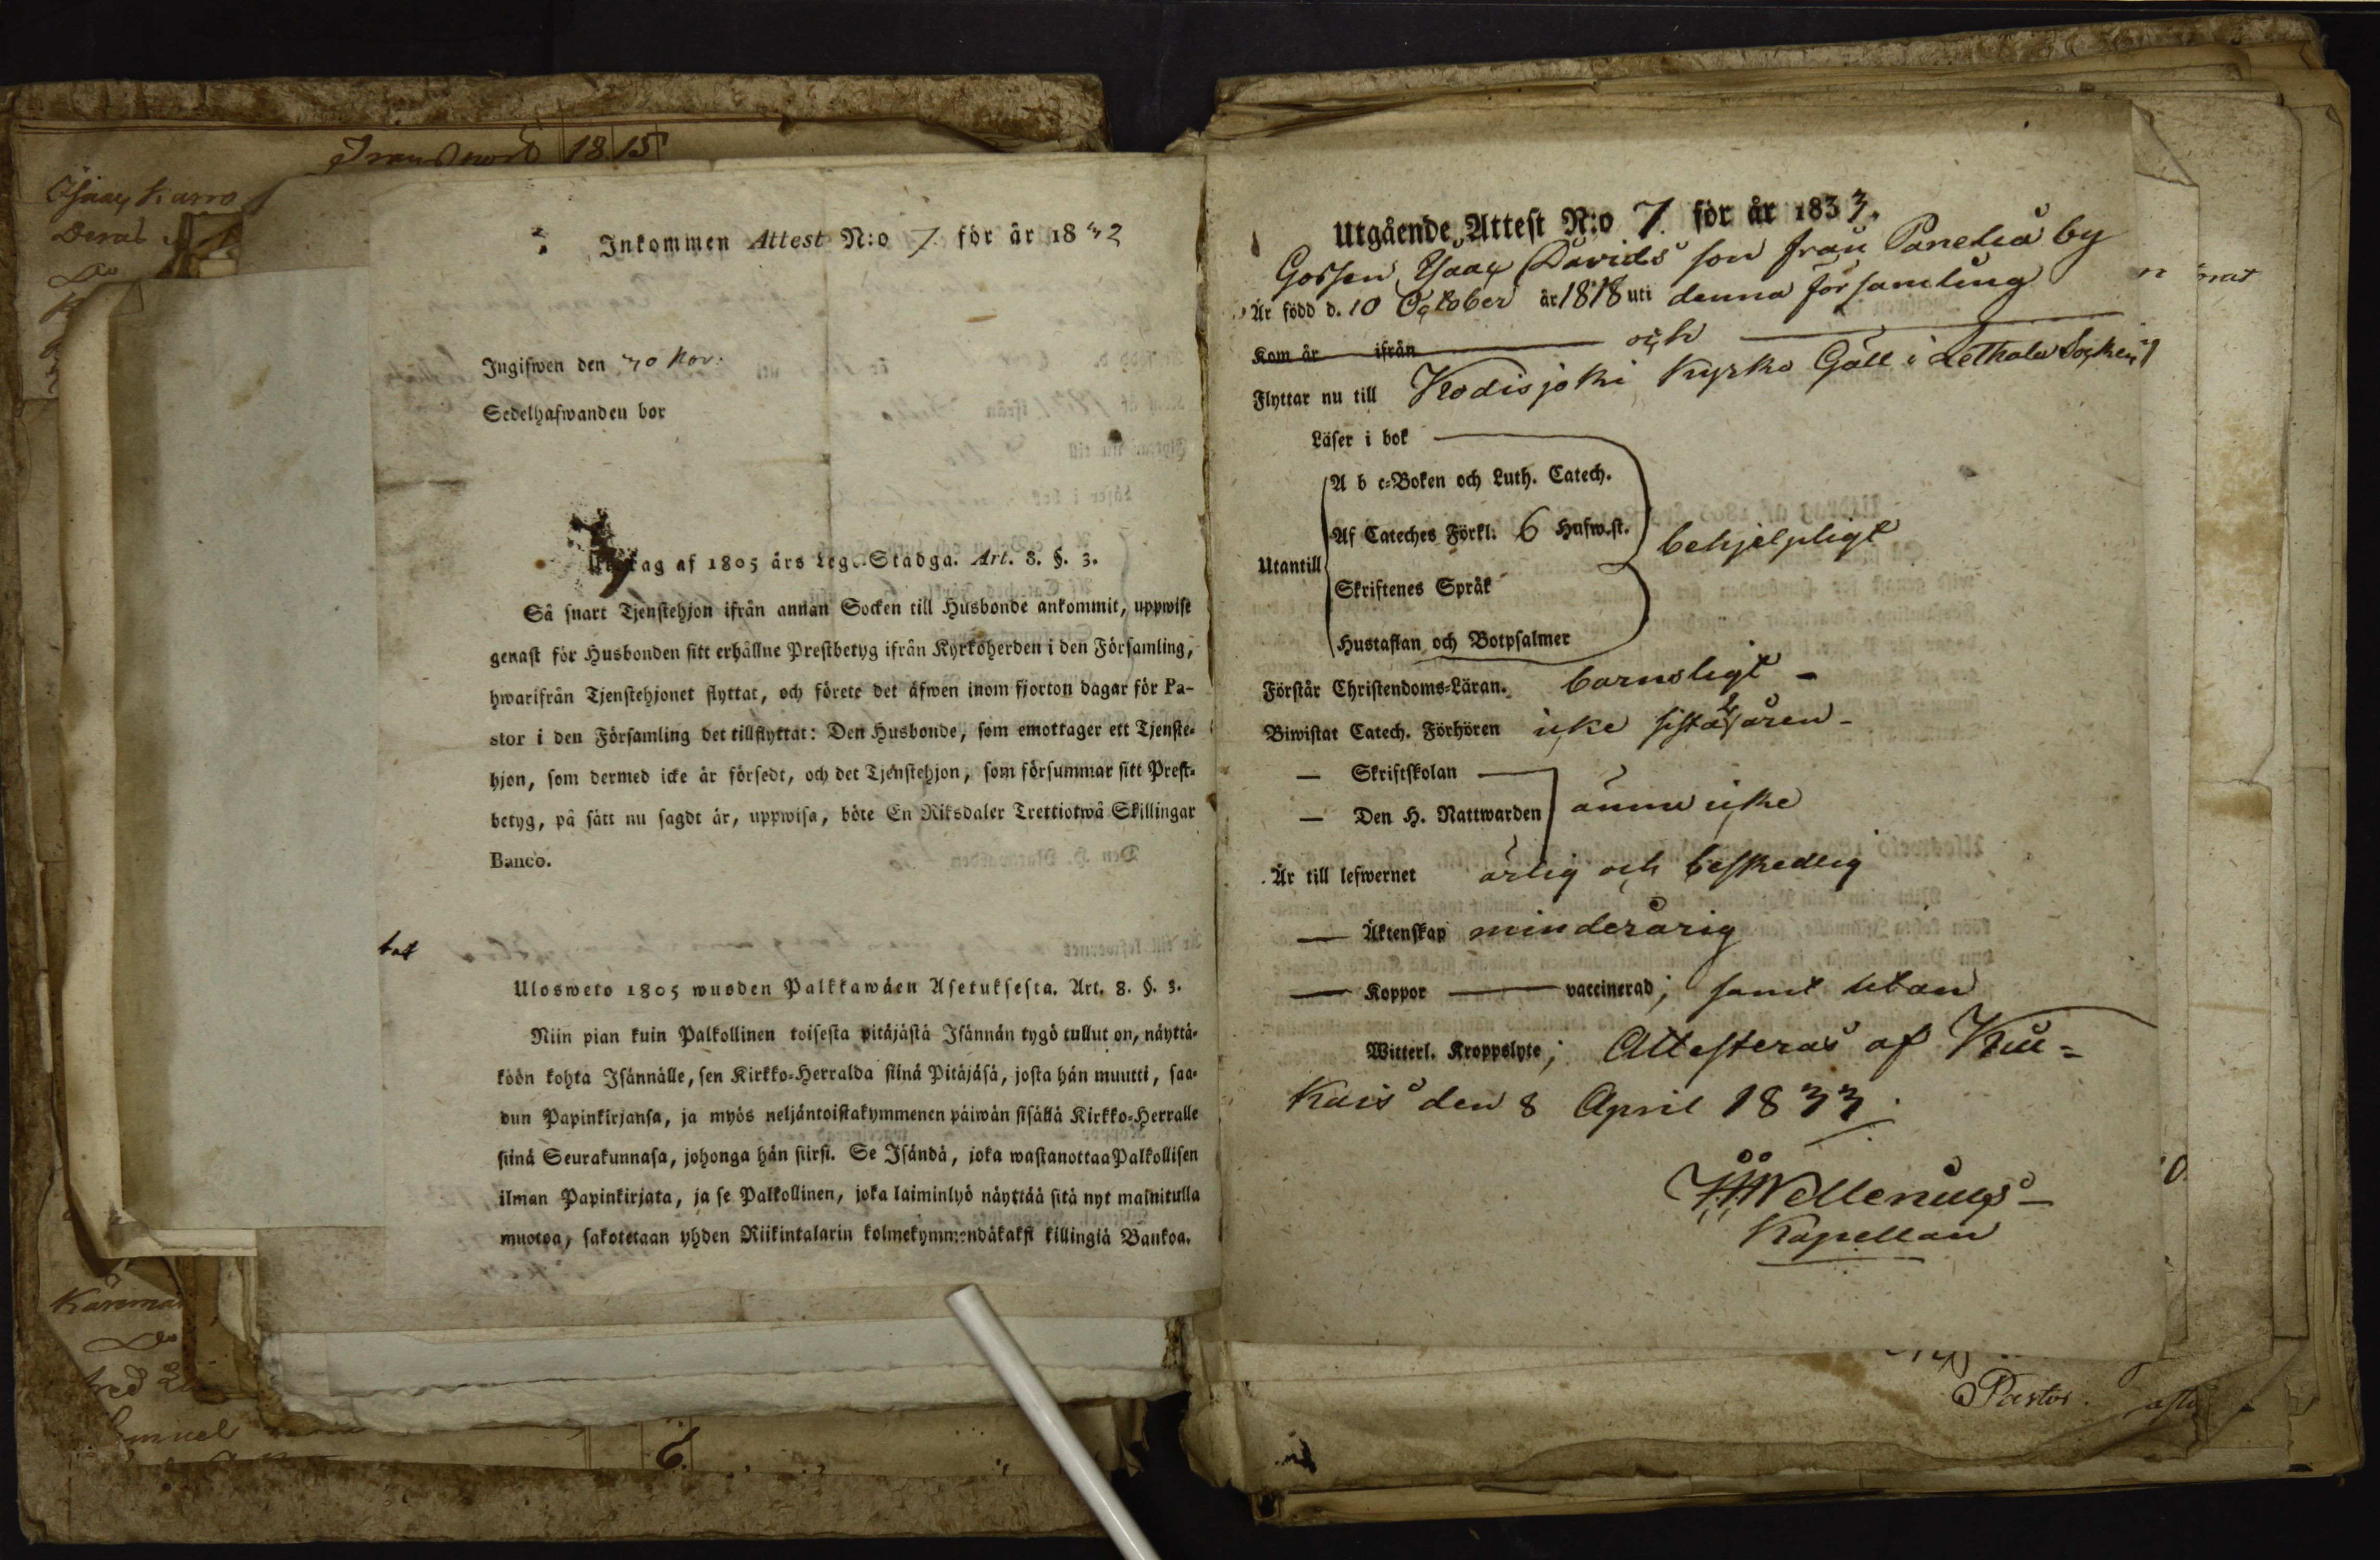 1815
Isaac Karra
Inkommen Attest N:o 7. för år 1832
Ingifwen den 30 Nov:
Sedelhafwanden bor
ag af 1805 års Lego-Stadga. Art. 8. §. 3.
Så snart Tjenstehjon ifrån annan Socken till Husbonde ankommit, uppwise
genast för Husbonden sitt erhållne Prestbetyg ifrån Kyrkoherden i den Församling,
hwarifrån Tjenstehjonet flyttat, och förete det äfwen inom fjorton dagar för Pa-
stor i den Församling det tillflyttat: Den Husbonde, som emottager ett Tjenste-
hjon, som dermed icke är försedt, och det Tjenstehjon, som försummar sitt Prest-
betyg, på sätt nu sagdt är, uppwisa, böte En Riksdaler Trettiotwå Skillingar
Banco.
Ulosweto 1805 wuoden Palkkawäen Asetuksesta. Art. 8. §. 3.
Niin pian kuin Palkollinen toisesta pitäjästä Isännän tygö tullut on, näyttä-
köön kohta Isännälle, sen Kirkko-Herralda siinä Pitäjäsä, josta hän muutti, saa-
dun Papinkirjansa, ja myös neljäntoistakymmenen päiwän sisällä Kirkko-Herralle
siinä Seurakunnasa, johonga hän siirsi. Se Isändä, joka wastanottaa Palkollisen
ilman Papinkirjata, ja se Palkollinen, joka laiminlyö näyttää sitä nyt mainitulla
muotoa, sakotetaan yhden Riikintalarin kolmekymmendäkaksi killingiä Bankoa.
Utgående Attest N:o 7. för år 1833.
Gossen Isaac Davids son från Panelia by
Är född d. 10 October år 1818 uti denna församling
Kom år ifrån och
Flyttar nu till Kodisjoki Kyrko Gäll i Lethala Socken;
Läser i bok
A b c-Boken och Luth. Catech.
Af Cateches Förkl. 6 Hufw.st.
behjelpligt
Utantill
Skriftenes Språk
Hustaflan och Botpsalmer
Förstår Christendoms-Läran. barnsligt -
Biwistat Catech. Förhören icke sista 2 åren -
— Skriftskolan
— Den H. Nattwarden ännu icke
Är till lefwernet ärlig och beskedlig
— Äktenskap minderårig
— Koppor — vaccinerad; samt utan
Witterl. Kroppslyte; Attesteras af Kiu-
kais den 8 April 1833.
Wellenius
Kapellan
Pastor.